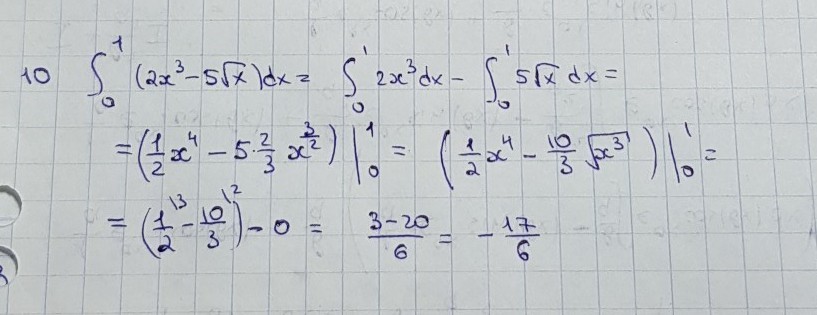 10 ∫₀¹ (2x³ - 5√x)dx = ∫₀¹ 2x³dx - ∫₀¹ 5√x dx =
= (1/2 x⁴ - 5·2/3 x^(3/2)) |₀¹ = (1/2 x⁴ - 10/3 √x³) |₀¹ =
= (1/2 \3 - 10/3 \2) - 0 = (3-20)/6 = -17/6